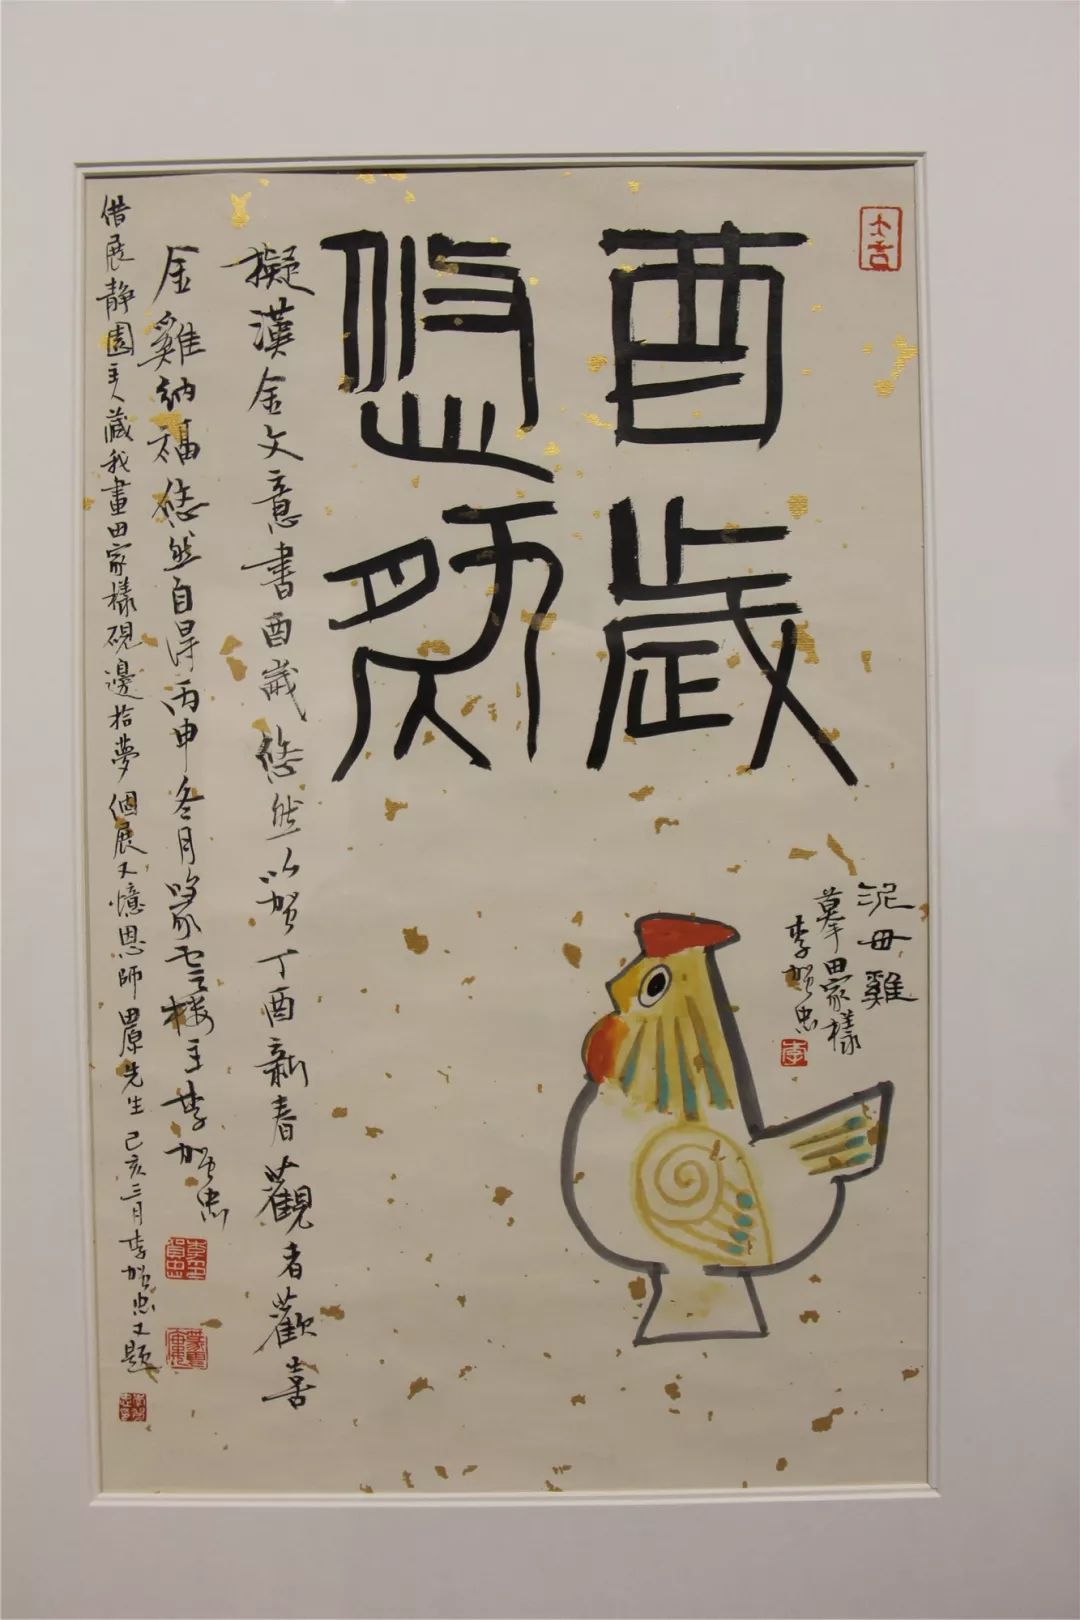 大吉
酉歲
悠然
泥母雞
摹田家樣
李賀忠
擬漢金文意書酉歲悠然以賀丁酉新春觀者歡喜
金雞納福悠然自得丙申冬月 雲樓主李賀忠
借展静園主人藏我畫田家樣硯邊拾夢個展又憶恩師 先生己亥三月李賀忠又題